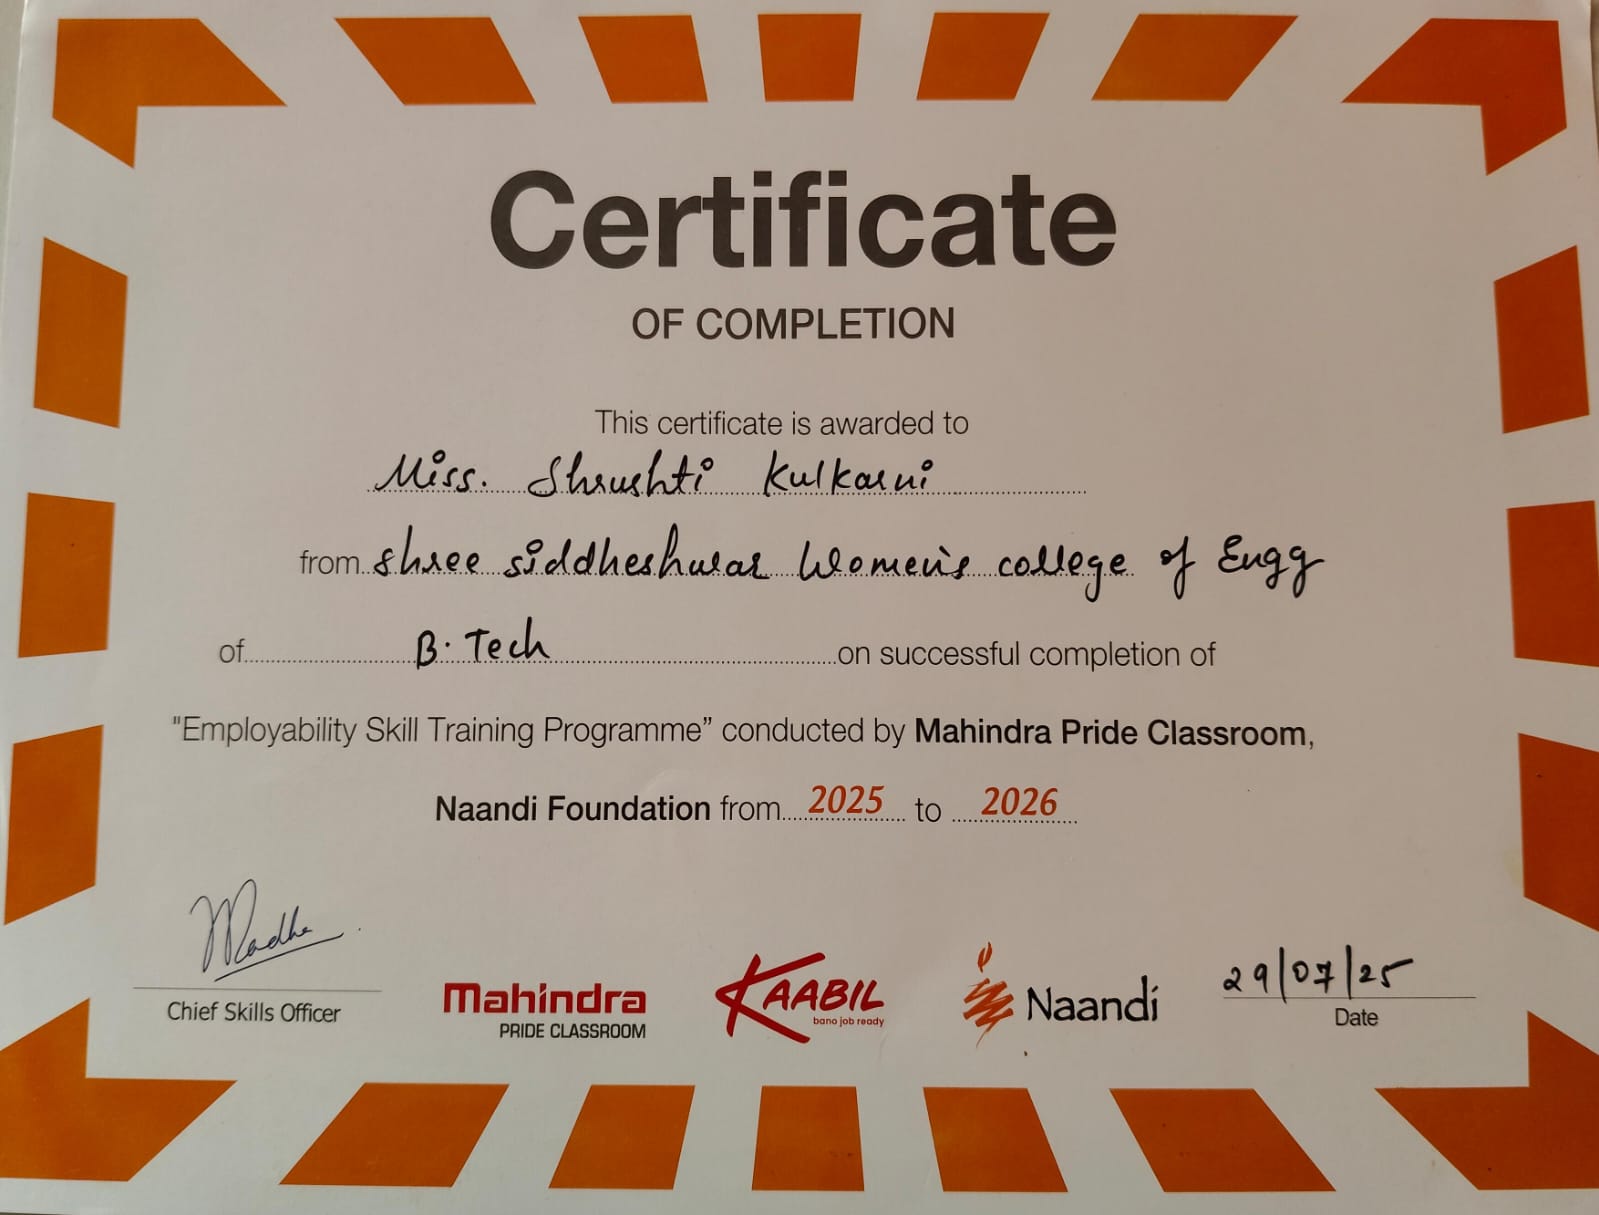 Certificate
OF COMPLETION
This certificate is awarded to
Miss. Shrushti Kulkarni
from shree siddheshwar Women's college of Engg
of B. Tech on successful completion of
"Employability Skill Training Programme” conducted by Mahindra Pride Classroom,
Naandi Foundation from 2025 to 2026
Chief Skills Officer
Mahindra
PRIDE CLASSROOM
KAABIL
bano job ready
Naandi
29/07/25
Date